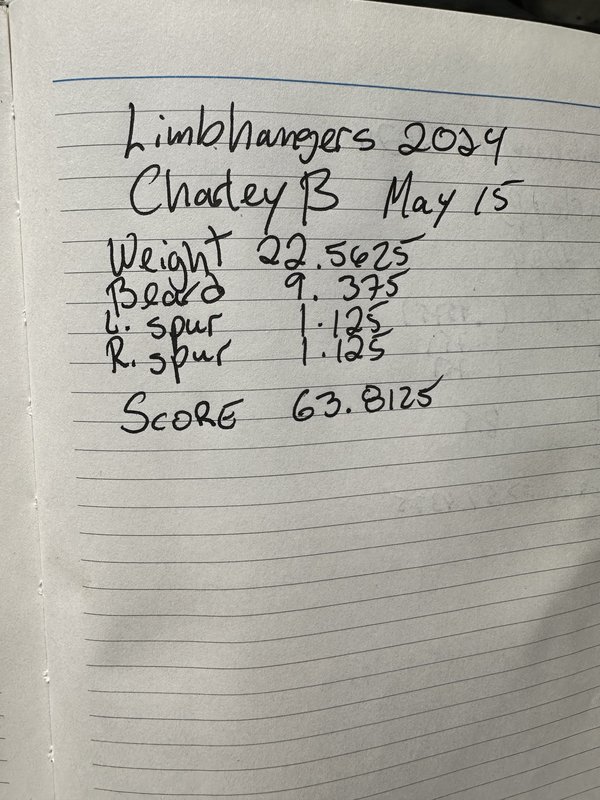 Limbhangers 2024
Charley B May 15
Weight 22.5625
Beard 9.375
L. spur 1.125
R. spur 1.125
SCORE 63.8125